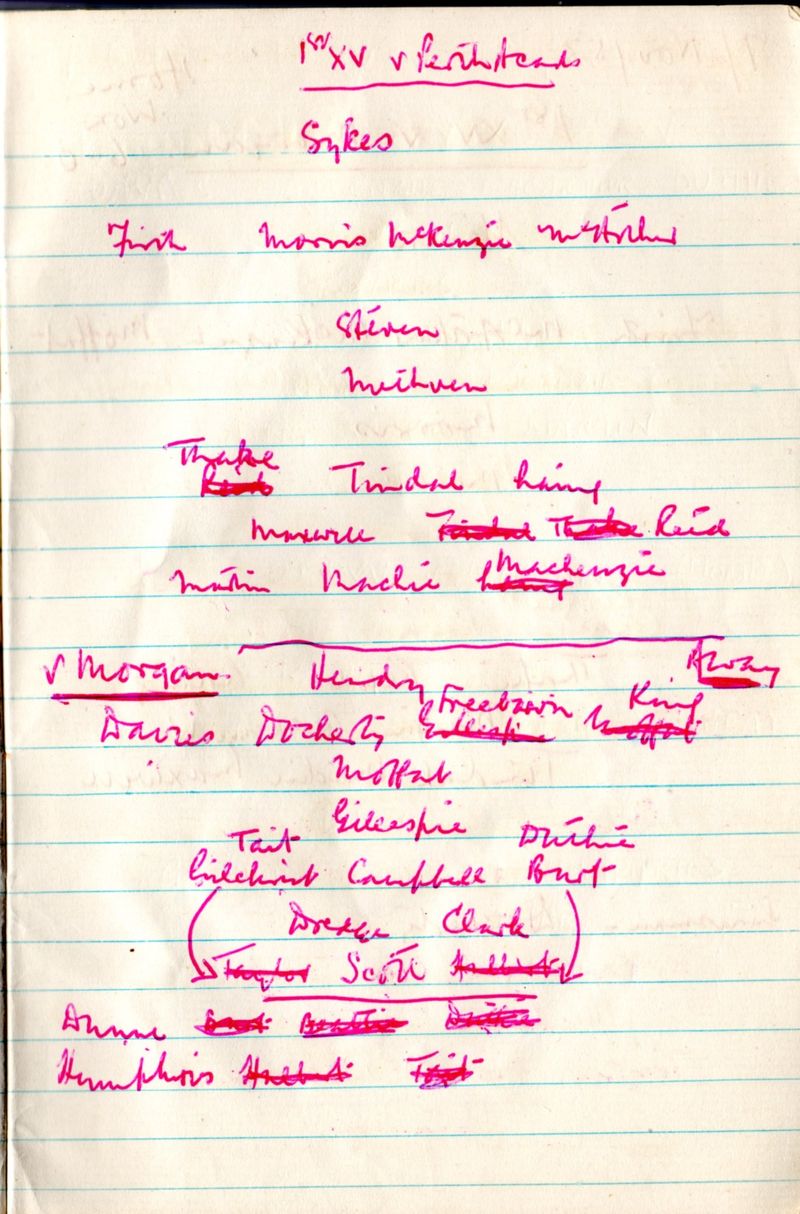 1st XV v Perth Acads
Sykes
Firth Morris McKenzie McArthur
Steven
Methven
Thake
Reid Tindal Laing
Maxwell Tindal Thake Reid
Mackenzie
Martin Mackie Laing
v Morgan Hendry Away
Freebairn King
Davies Docherty Gillespie Moffat
Moffat
Gillespie
Tait Duthie
Gilchrist Campbell Burt
Dredge Clark
Taylor Scott Halbert
Dunne Burt Beattie Duthie
Humphris Halbert Tait